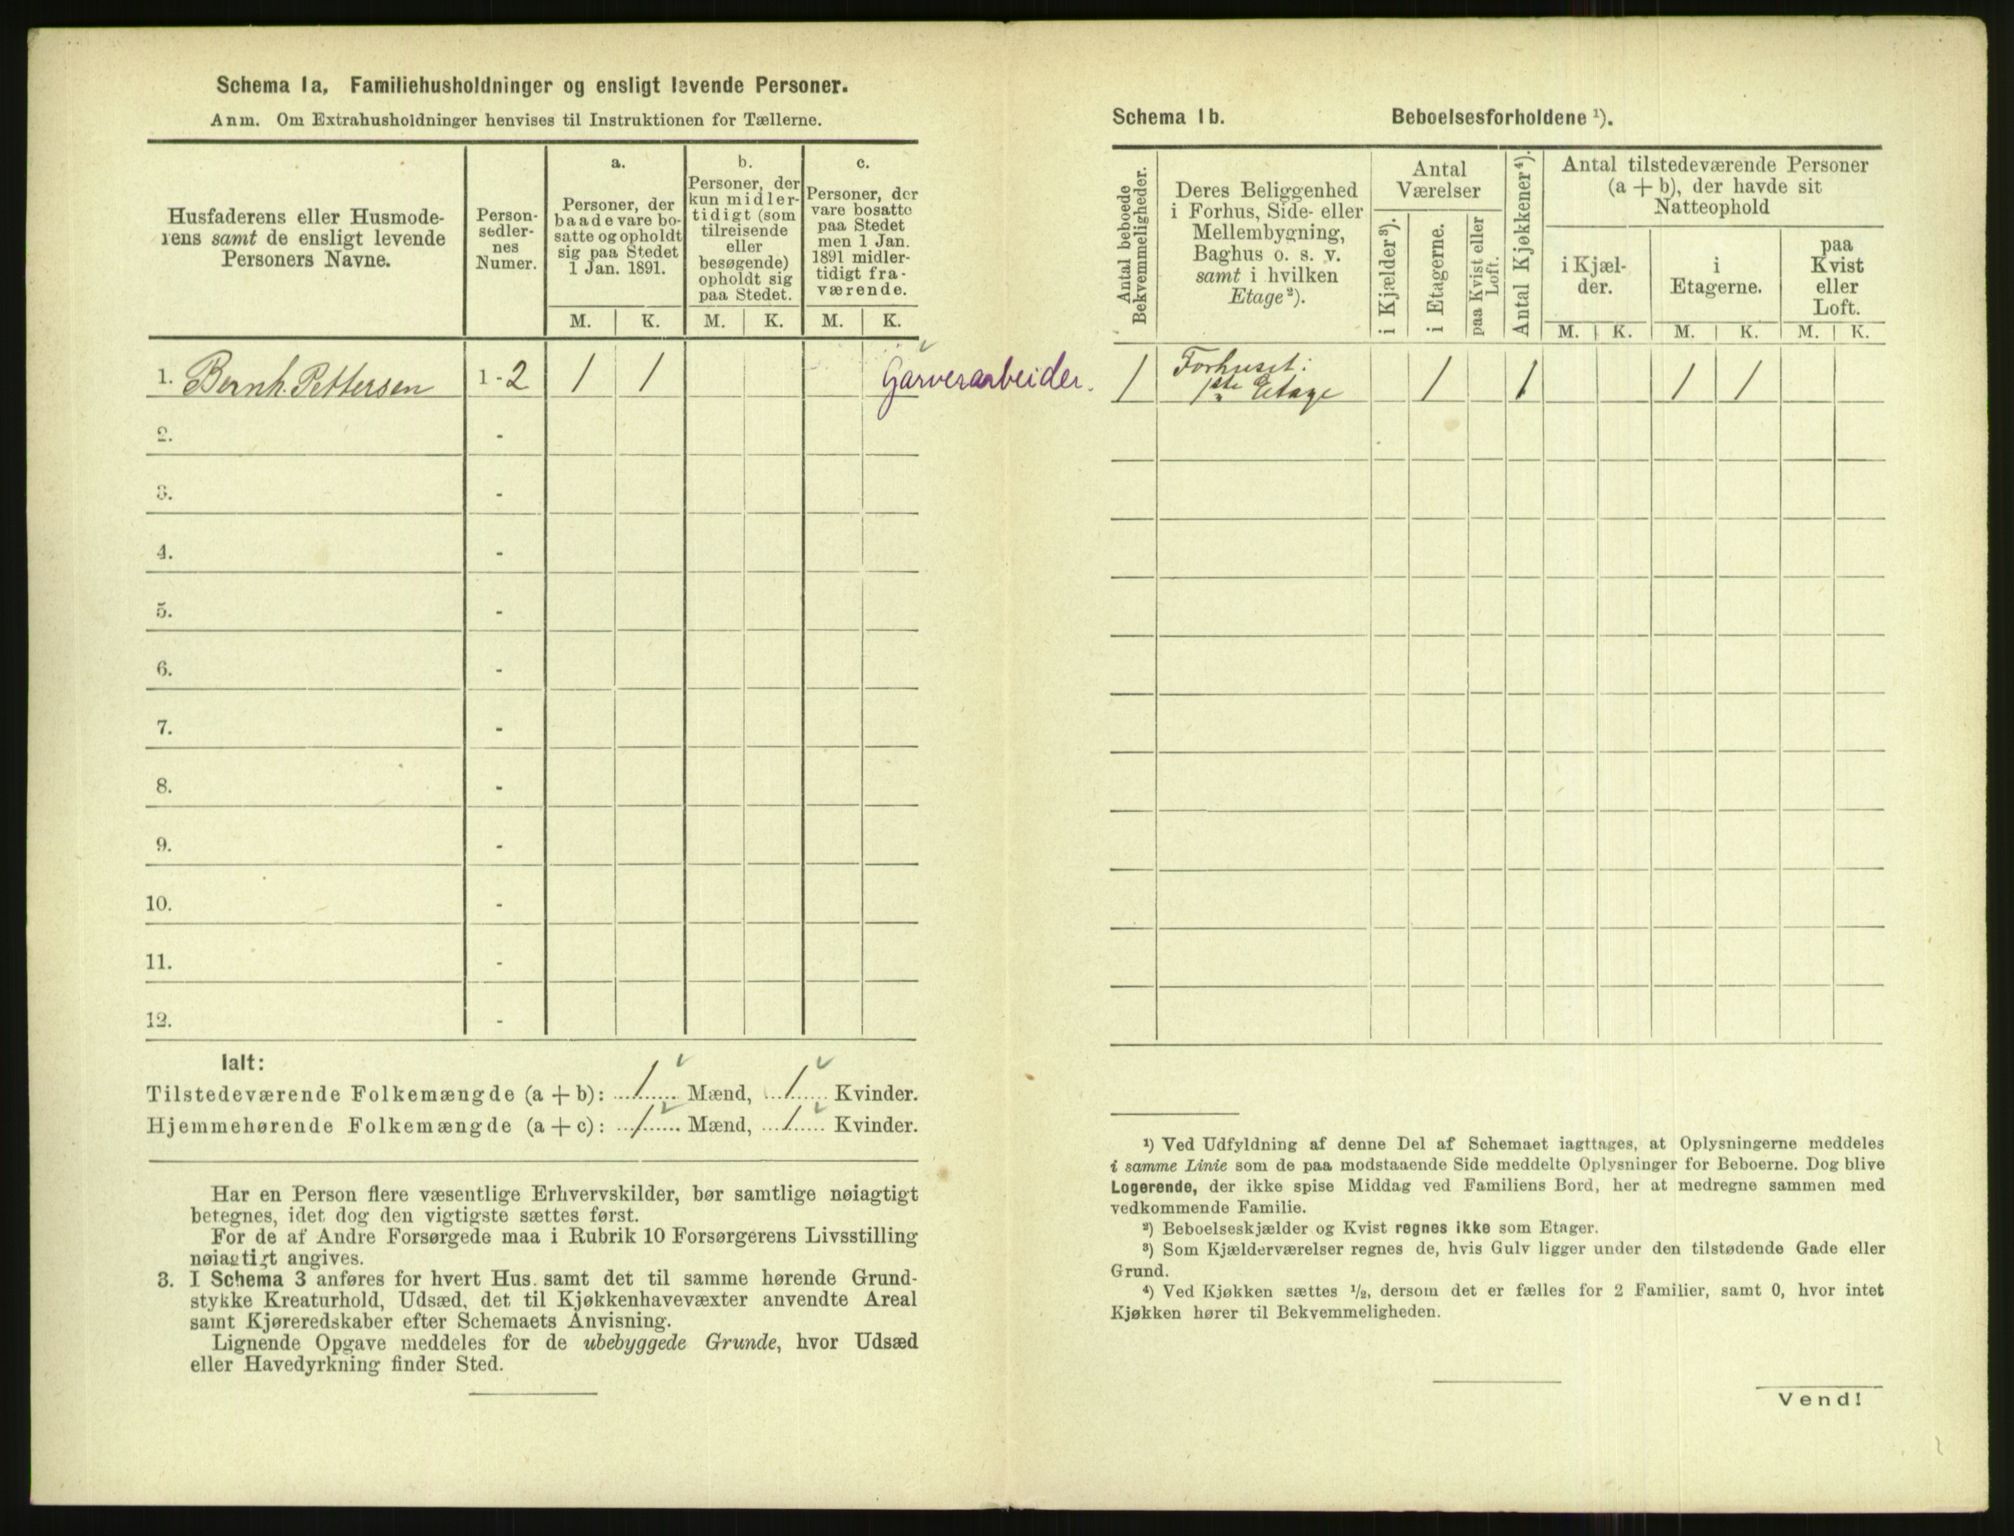 Schema 1a, Familiehusholdninger og ensligt levende Personer.
Anm. Om Extrahusholdninger henvises til Instruktionen for Tællerne.
Husfaderens eller Husmode-
rens samt de ensligt levende
Personers Navne.
Person-
sedler-
nes
Numer.
a.
Personer, der
baade vare bo-
satte og opholdt
sig paa Stedet
1 Jan. 1891.
b.
Personer, der
kun midler-
tidigt (som
tilreisende
eller
besøgende)
opholdt sig
paa Stedet.
c.
Personer, der
vare bosatte
paa Stedet
men 1 Jan.
1891 midler-
tidigt fra-
værende.
M. K. M. K. M. K.
1. Bernh. Pettersen 1-2 1 1 Garverarbeider.
2. -
3. -
4. -
5. -
6. -
7. -
8. -
9. -
10. -
11. -
12. -
Ialt:
Tilstedeværende Folkemængde (a + b): 1 Mænd, 1 Kvinder.
Hjemmehørende Folkemængde (a + c): 1 Mænd, 1 Kvinder.
Har en Person flere væsentlige Erhvervskilder, bør samtlige nøiagtigt
betegnes, idet dog den vigtigste sættes først.
For de af Andre Forsørgede maa i Rubrik 10 Forsørgerens Livsstilling
nøiagtigt angives.
3. I Schema 3 anføres for hvert Hus samt det til samme hørende Grund-
stykke Kreaturhold, Udsæd, det til Kjøkkenhavevæxter anvendte Areal
samt Kjøreredskaber efter Schemaets Anvisning.
Lignende Opgave meddeles for de ubebyggede Grunde, hvor Udsæd
eller Havedyrkning finder Sted.
Schema 1b. Beboelsesforholdene ¹).
Antal beboede
Bekvemmeligheder.
Deres Beliggenhed
i Forhus, Side- eller
Mellembygning,
Baghus o. s. v.
samt i hvilken
Etage²).
Antal
Værelser
i Kjælder³).
i Etagerne.
paa Kvist eller
Loft.
Antal Kjøkkener⁴).
Antal tilstedeværende Personer
(a + b), der havde sit
Natteophold
i Kjæl-
der.
i
Etagerne.
paa
Kvist
eller
Loft.
M. K. M. K. M. K.
1 Forhuset: 1 1 1 1
1ste Etage
¹) Ved Udfyldning af denne Del af Schemaet iagttages, at Oplysningerne meddeles
i samme Linie som de paa modstaaende Side meddelte Oplysninger for Beboerne. Dog blive
Logerende, der ikke spise Middag ved Familiens Bord, her at medregne sammen med
vedkommende Familie.
²) Beboelseskjælder og Kvist regnes ikke som Etager.
³) Som Kjælderværelser regnes de, hvis Gulv ligger under den tilstødende Gade eller
Grund.
⁴) Ved Kjøkken sættes ½, dersom det er fælles for 2 Familier, samt 0, hvor intet
Kjøkken hører til Bekvemmeligheden.
Vend!